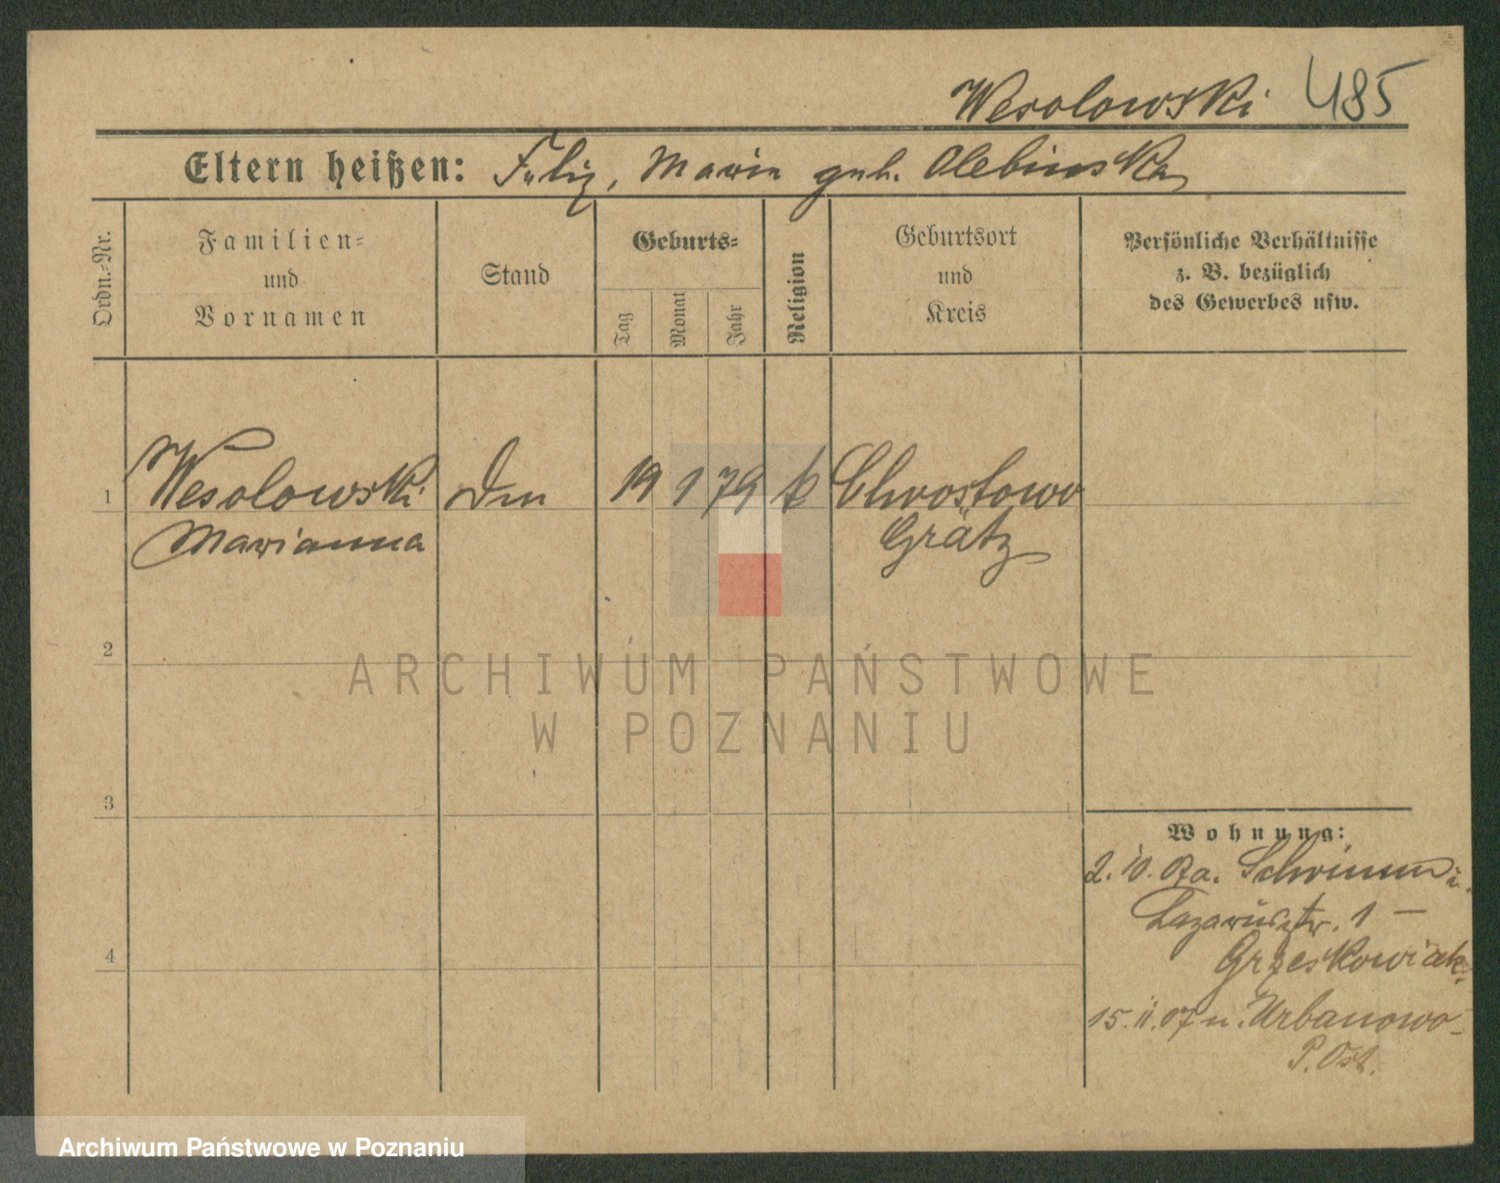 Wesolowski 485
Eltern heißen: Felix, Maria geb. Olebinska
Ordn.-Nr.
Familien-
und
Vornamen
Stand
Geburts-
Tag
Monat
Jahr
Religion
Geburtsort
und
Kreis
Persönliche Verhältnisse
z. B. bezüglich
des Gewerbes usw.
1 Wesolowski 19 1 79 k Chrostowo
Marianna Grätz
2
ARCHIWUM PAŃSTWOWE
W POZNANIU
3
Wohnung:
Lazarusstr. 1 —
Grzeskowiak
4
15. 11. 07 n. Urbanowo-
P. Ost.
Archiwum Państwowe w Poznaniu